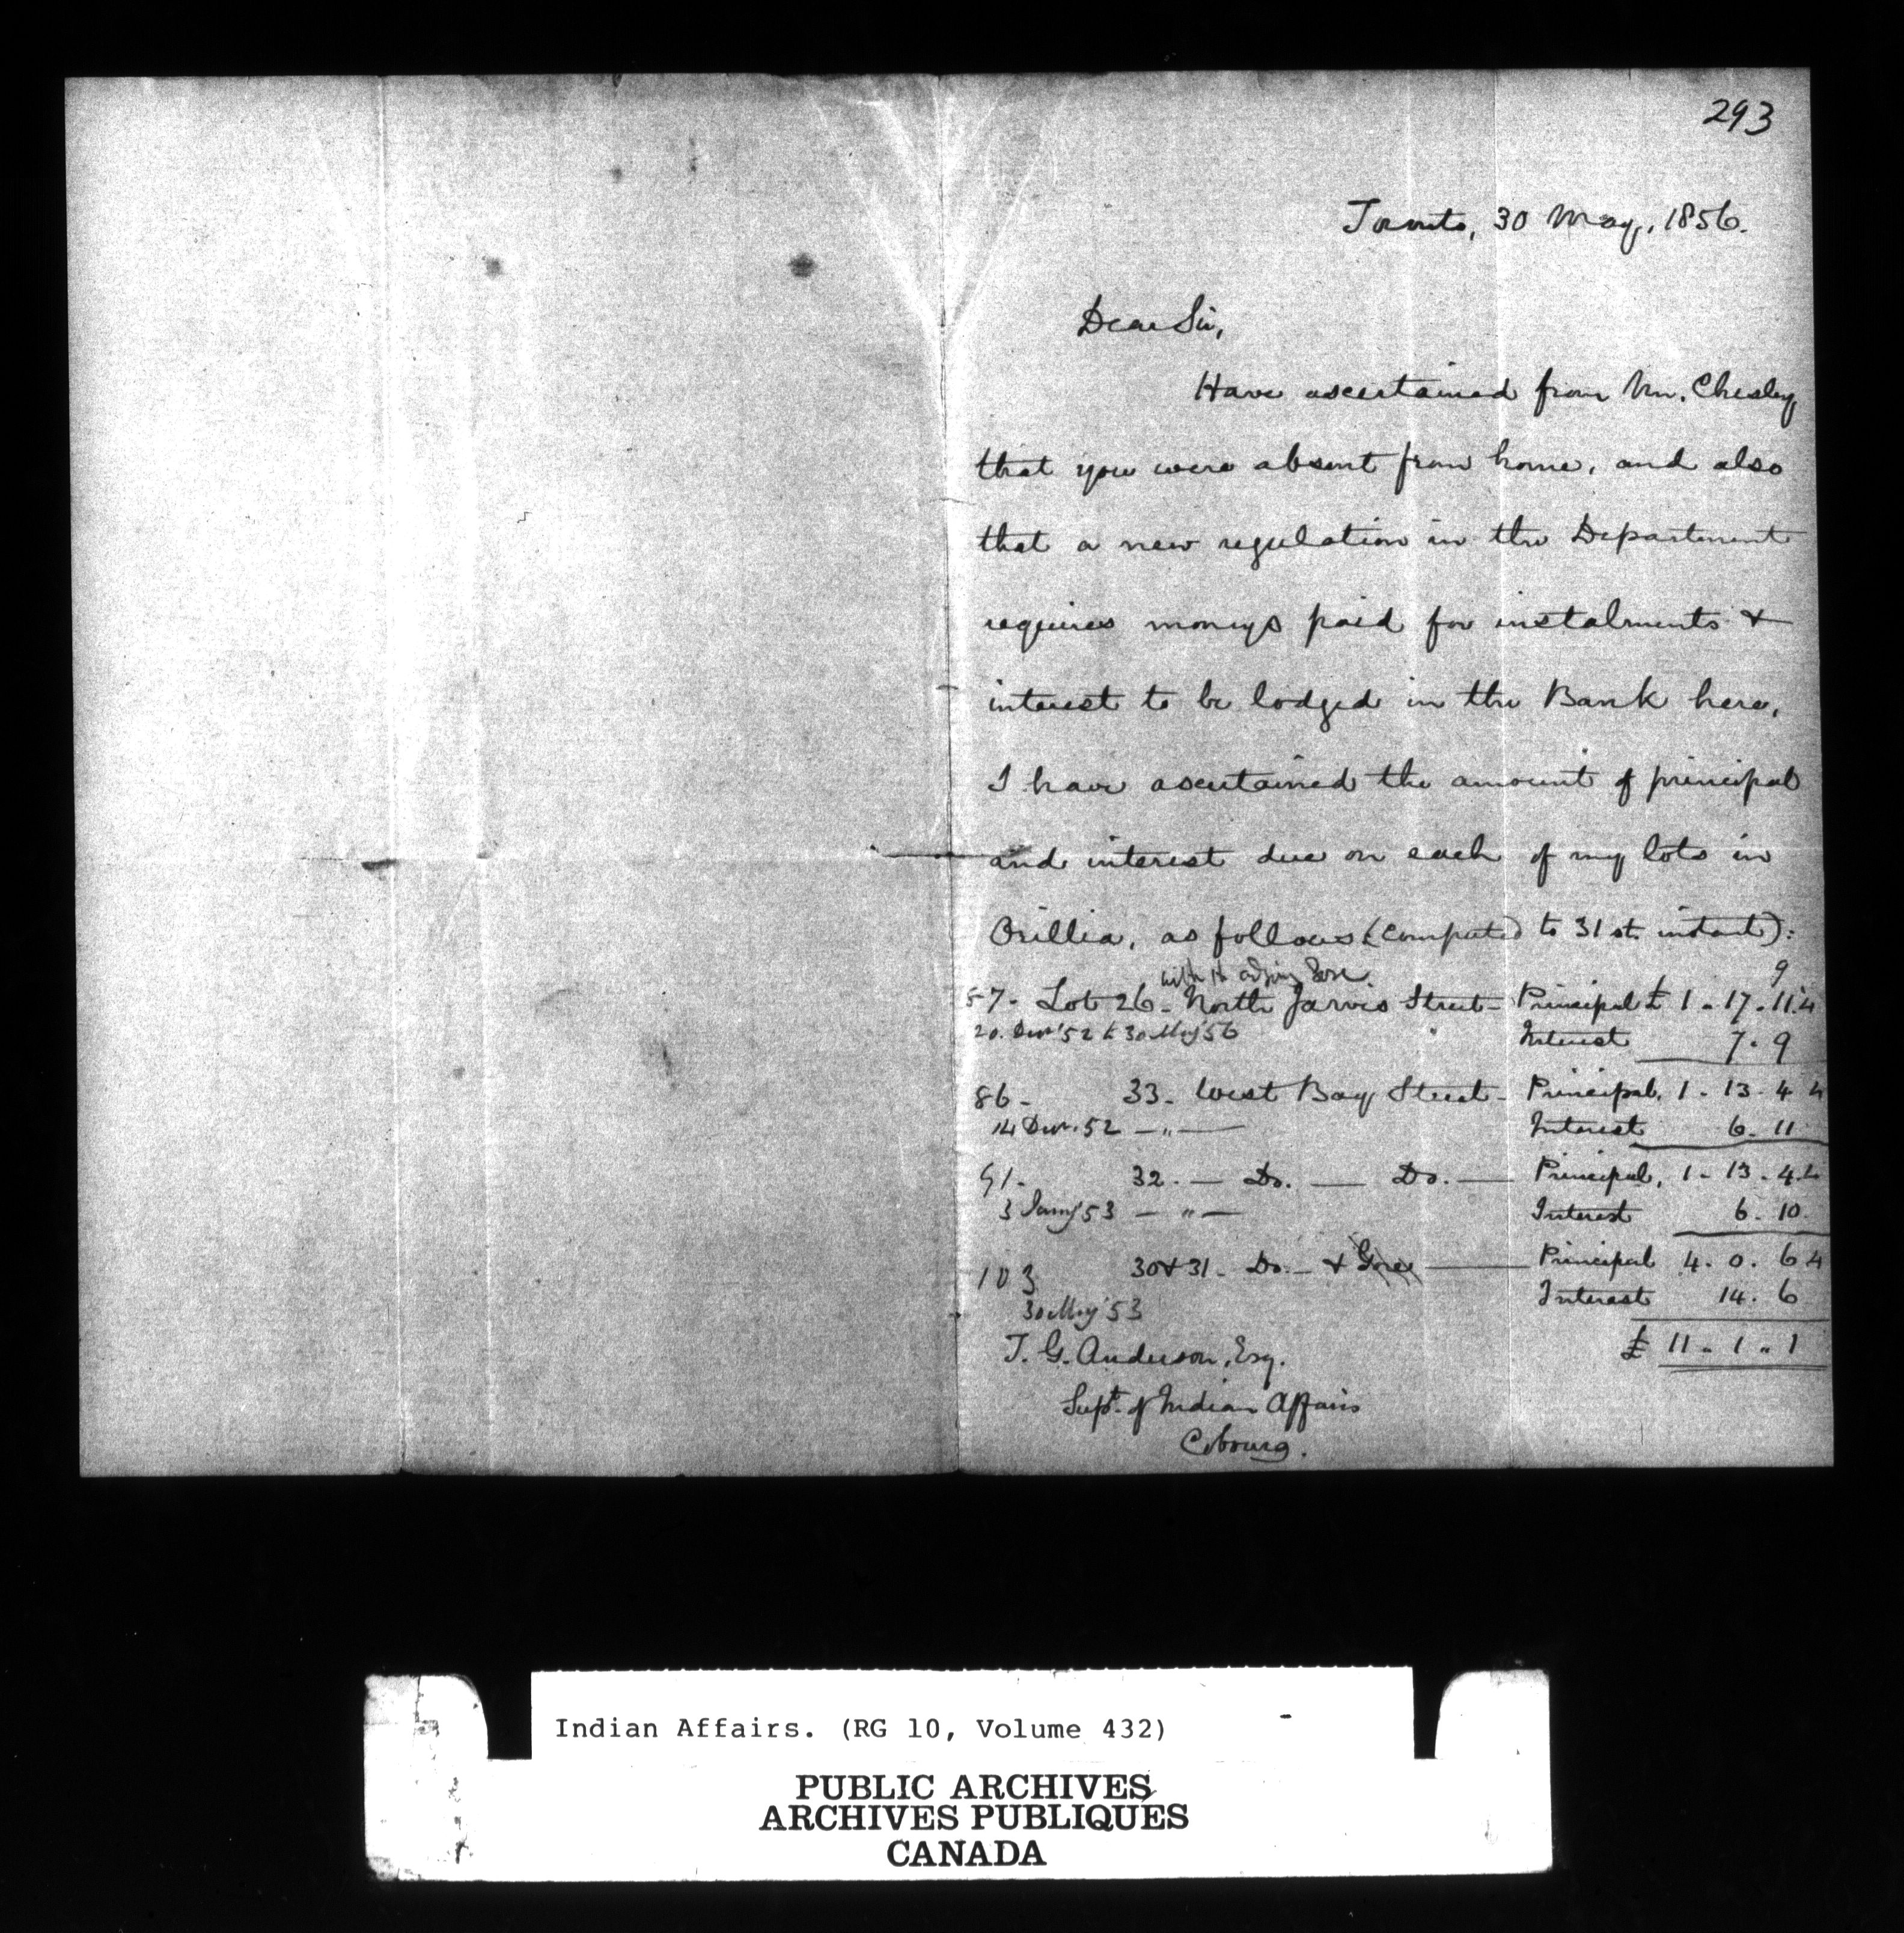 293
Toronto, 30 May, 1856.
Dear Sir,
Have ascertained from Mr. Chesley
that you were absent from home, and also
that a new regulation in the Department
requires moneys paid for instalments &
interest to be lodged in the Bank here,
I have ascertained the amount of principal
and interest due on each of my lots in
Orillia, as follows (computed to 31st. instant):
9
57- Lot 26- North Jarvis Street- Principal £ 1 - 17 - 11.4
20. Decr '52 to 30 May '56 Interest 7 - 9
86- 33- West Bay Street- Principal, 1 - 13 - 4 4
14 Decr. 52 — " — Interest 6 - 11
91- 32. — Do. — Do. — Principal, 1 - 13 - 4.4
3 Jany '53 — " — Interest 6 - 10
103 30 & 31 - Do. — & Gore — Principal 4 - 0 - 6 4
30 May '53 Interest 14 - 6
£ 11 - 1 - 1
T. G. Anderson, Esq.
Supt. of Indian Affairs
Cobourg.
Indian Affairs. (RG 10, Volume 432)
PUBLIC ARCHIVES
ARCHIVES PUBLIQUES
CANADA